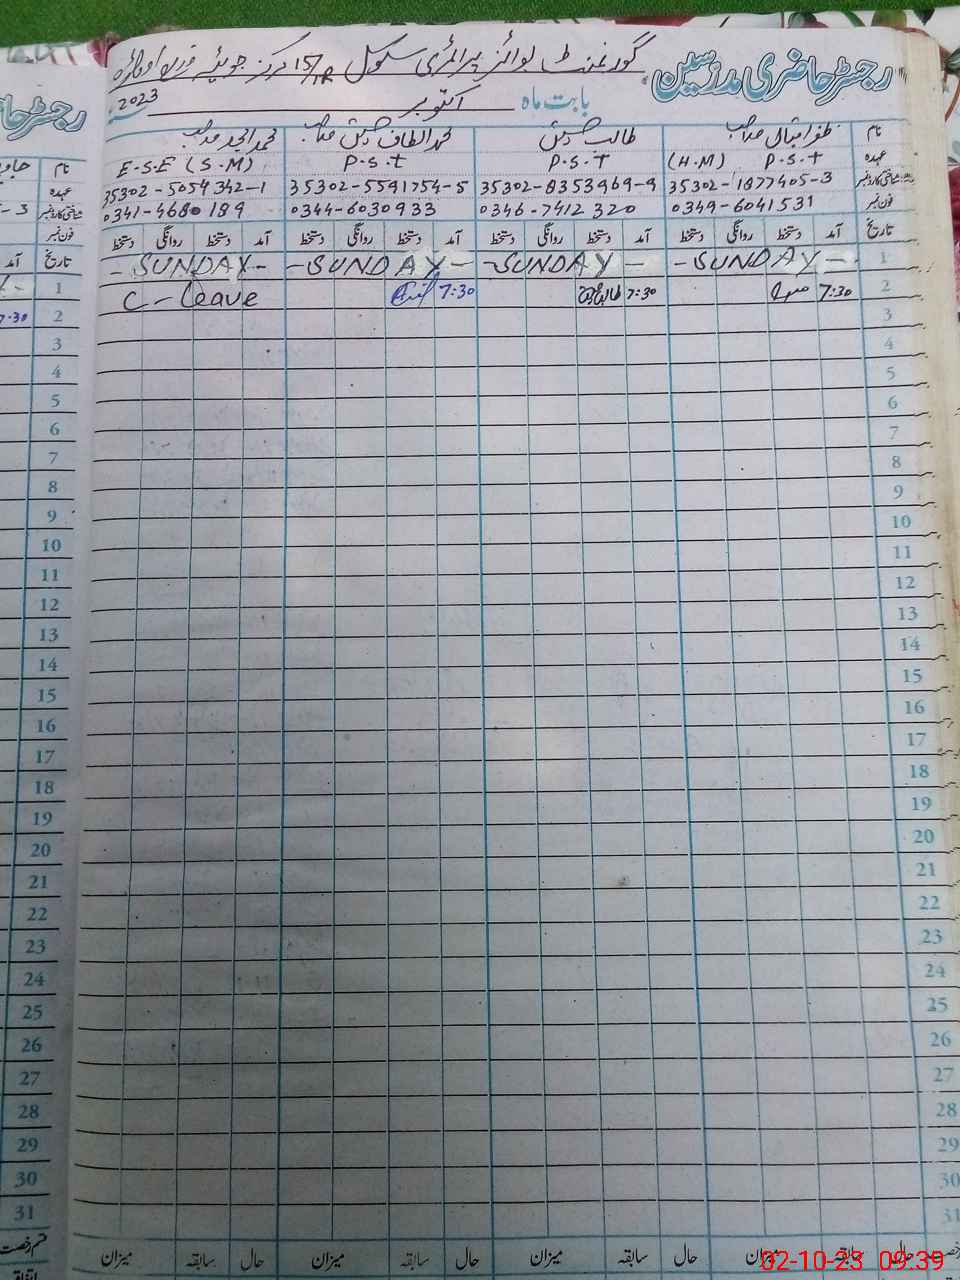 رجسٹر حاضری مدرسین گورنمنٹ بوائز پرائمری سکول 15/1R مرکز جوئیہ ضلع اوکاڑہ
بابت ماہ اکتوبر 2023
نام ظفر اقبال صاحب طالب حسین محمد الطاف حسین صاحب محمد امجد صاحب
عہدہ P.S.T (H.M) P.S.T P.S.T E.S.E (S.M)
شناختی کارڈ نمبر 35302-1877405-3 35302-8353969-9 35302-5591754-5 35302-5054342-1
فون نمبر 0349-6041531 0346-7412320 0344-6030933 0341-4680189
تاریخ آمد دستخط روانگی دستخط آمد دستخط روانگی دستخط آمد دستخط روانگی دستخط آمد دستخط روانگی دستخط
1 -SUNDAY- -SUNDAY- -SUNDAY- -SUNDAY-
2 7:30 7:30 7:30 C-Leave
3
4
5
6
7
8
9
10
11
12
13
14
15
16
17
18
19
20
21
22
23
24
25
26
27
28
29
30
31
حال سابقہ میزان حال سابقہ میزان حال سابقہ میزان حال سابقہ میزان
رجسٹر حا
نام
عہدہ
شناختی کارڈ نمبر 3
فون نمبر
تاریخ آمد
1
2 7:30
3
4
5
6
7
8
9
10
11
12
13
14
15
16
17
18
19
20
21
22
23
24
25
26
27
28
29
30
31
قسم رخصت
02-10-23 09:39